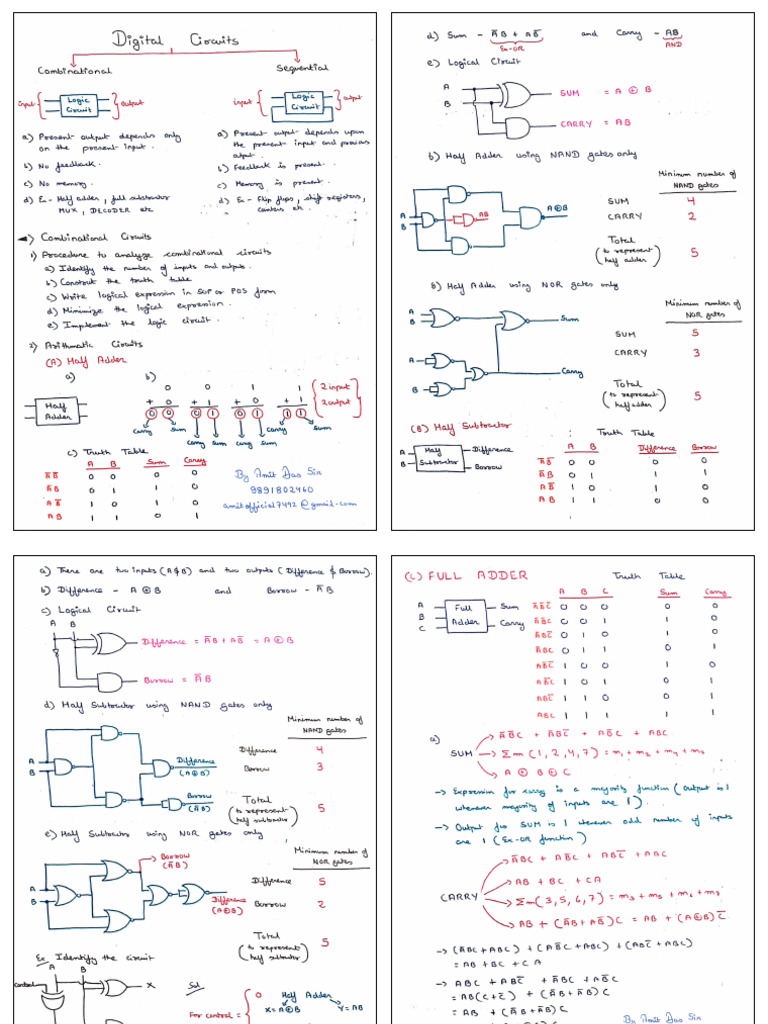 Digital Circuits
Combinational
Sequential
input
Logic
Circuit
output
input
Logic
Circuit
output
a) Present output depends only
on the present input.
b) No feedback.
c) No memory.
d) Ex- Half adder, full subtractor
MUX, DECODER etc
a) Present output depends upon
the present input and previous
output.
b) Feedback is present.
c) Memory is present.
d) Ex- Flip flops, shift registers,
counters etc.
1) Combinational Circuits
1) Procedure to analyze combinational circuits
a) Identify the number of inputs and outputs.
b) Construct the truth table
c) Write logical expression in SOP or POS form
d) Minimize the logical expression.
e) Implement the logic circuit.
2) Arithmatic Circuits
(A) Half Adder
a)
b)
Half
Adder
0 0 1 1
+ 0 + 1 + 0 + 1
0 0 0 1 0 1 1 0
2 input
2 output
carry sum carry sum carry sum carry sum
c) Truth Table
A B Sum Carry
A̅B̅ 0 0 0 0
A̅B 0 1 1 0
AB̅ 1 0 1 0
AB 1 1 0 1
By Amit Das Sir
9891802460
amitofficial7492@gmail.com
d) Sum - A̅B + AB̅ and Carry - AB
Ex-OR
AND
e) Logical Circuit
A
B
SUM = A ⊕ B
CARRY = AB
b) Half Adder using NAND gates only
A
B
AB
A⊕B
Minimum number of
NAND gates
SUM 4
CARRY 2
Total
(to represent
half adder)
5
g) Half Adder using NOR gates only
A
B
Sum
A
B
Carry
Minimum number of
NOR gates
SUM 5
CARRY 3
Total
(to represent
half adder)
5
(B) Half Subtractor
A
B
Half
Subtractor
Difference
Borrow
Truth Table
A B Difference Borrow
A̅B̅ 0 0 0 0
A̅B 0 1 1 1
AB̅ 1 0 1 0
AB 1 1 0 0
a) There are two inputs (A & B) and two outputs (Difference & Borrow).
b) Difference - A ⊕ B and Borrow - A̅B
c) Logical Circuit
A B
Difference = A̅B + AB̅ = A ⊕ B
Borrow = A̅B
d) Half Subtractor using NAND gates only
A
B
Difference
(A⊕B)
Borrow
(A̅B)
Minimum number of
NAND gates
Difference 4
Borrow 3
Total
(to represent
half subtractor)
5
e) Half Subtractor using NOR gates only
A
B
Borrow
(A̅B)
Difference
(A⊕B)
Minimum number of
NOR gates
Difference 5
Borrow 2
Total
(to represent
half subtractor)
5
Ex Identify the circuit
A B
control
X
Sol
For control =
0 Half Adder
X = A⊕B Y = AB
(C) FULL ADDER
Truth Table
A
B
C
Full
Adder
Sum
Carry
A B C Sum Carry
A̅B̅C̅ 0 0 0 0 0
A̅B̅C 0 0 1 1 0
A̅BC̅ 0 1 0 1 0
A̅BC 0 1 1 0 1
AB̅C̅ 1 0 0 1 0
AB̅C 1 0 1 0 1
ABC̅ 1 1 0 0 1
ABC 1 1 1 1 1
a)
SUM
A̅B̅C + A̅BC̅ + AB̅C̅ + ABC
Σm (1, 2, 4, 7) = m₁ + m₂ + m₄ + m₇
A ⊕ B ⊕ C
→ Expression for carry is a majority function (output is 1
whenever majority of inputs are 1).
→ Output for SUM is 1 whenever odd number of inputs
are 1 (Ex-OR function)
CARRY
A̅BC + AB̅C + ABC̅ + ABC
AB + BC + CA
Σm(3, 5, 6, 7) = m₃ + m₅ + m₆ + m₇
AB + (A̅B + AB̅)C = AB + (A⊕B)C
→ (A̅BC + ABC) + (AB̅C + ABC) + (ABC̅ + ABC)
= AB + BC + CA
→ ABC + ABC̅ + A̅BC + AB̅C
= AB(C + C̅) + (A̅B + AB̅)C
= AB + (A̅B + AB̅)C
By Amit Das Sir